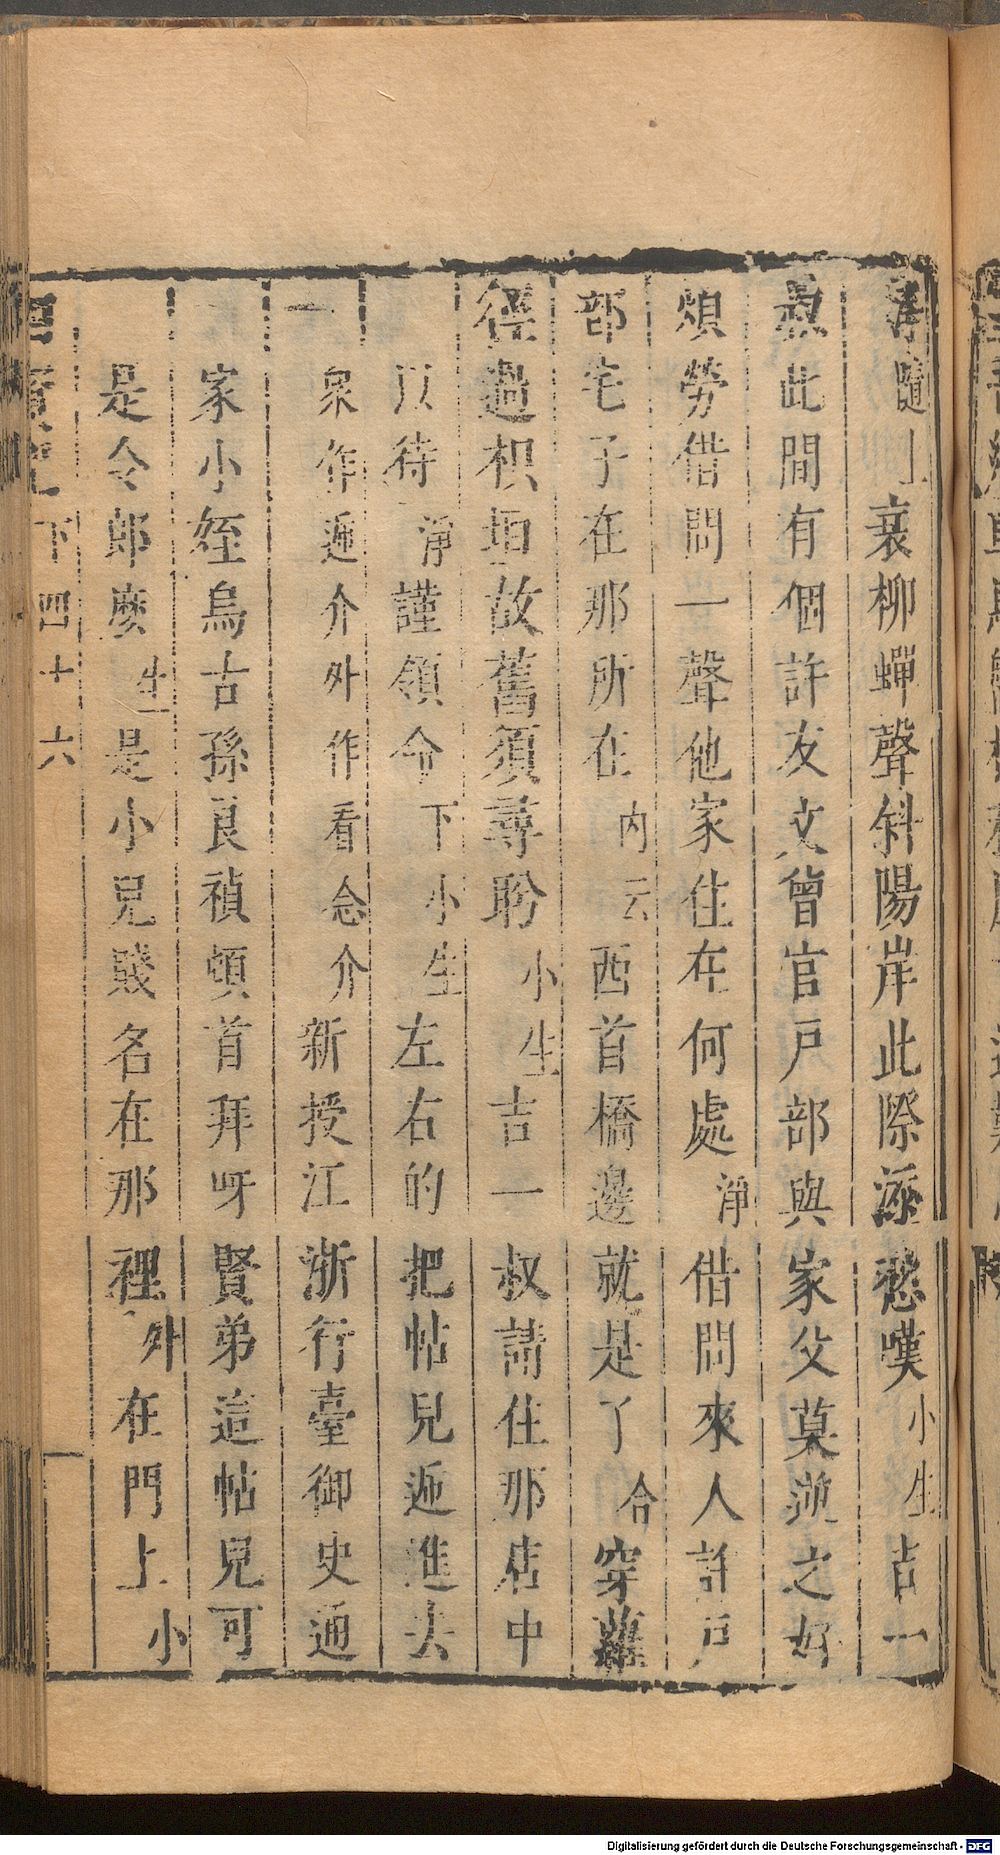 隨上衰柳蟬聲斜陽岸此際添愁嘆小生吉一
叔此間有個許友文曾官戶部與家父莫逆之好
煩勞借問一聲他家住在何處淨借問來人許戶
部宅子在那所在內云西首橋邊就是了合穿蘿
徑過枳垣故舊須尋盼小生吉一叔請住那店中
以待淨謹領命下小生左右的把帖兒遞進去
眾作遞介外作看念介新授江浙行臺御史通
家小姪烏古孫良禎頓首拜呀賢弟這帖兒可
是令郎麼生是小兒賤名在那裡外在門上小
下四十六
Digitalisierung gefördert durch die Deutsche Forschungsgemeinschaft - DFG